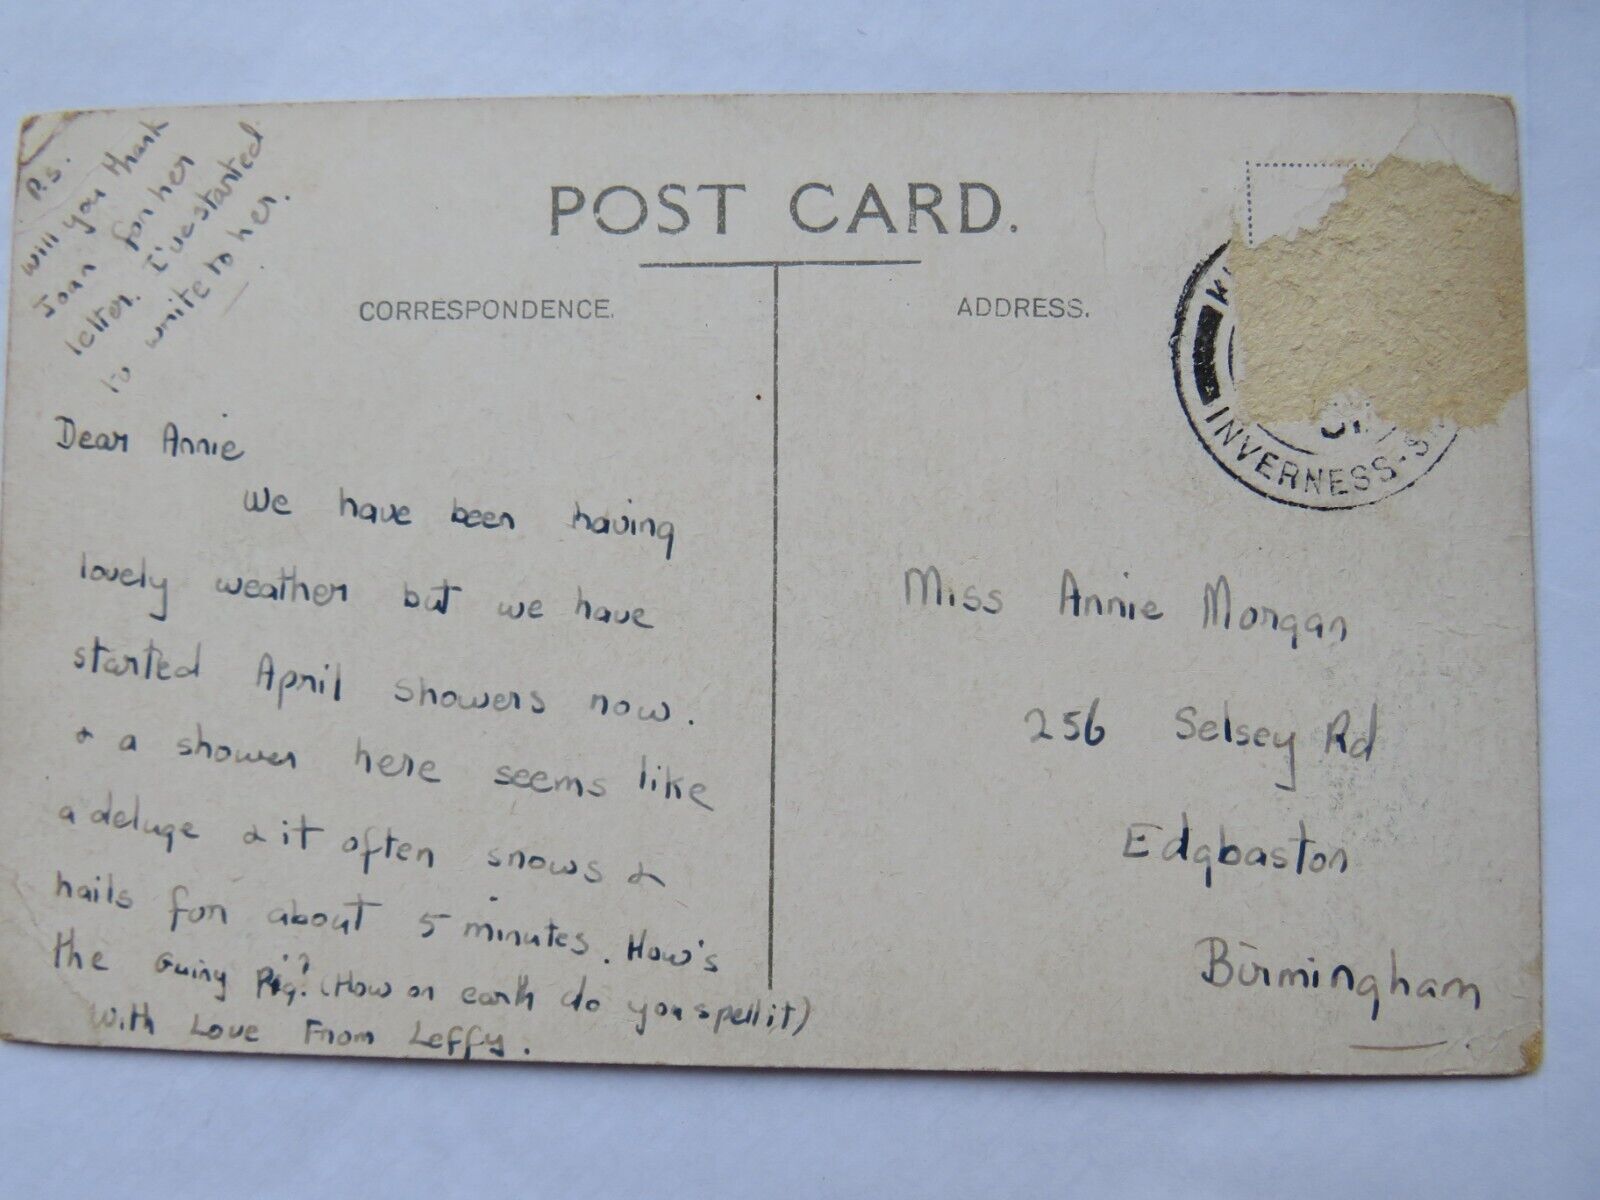 P.s.
will you thank
Joan for her
letter. I've started
to write to her.
POST CARD.
CORRESPONDENCE.
ADDRESS.
INVERNESS-
Dear Annie
We have been having
lovely weather but we have
started April showers now.
& a shower here seems like
a deluge & it often snows &
hails for about 5 minutes. How's
the Guiny Pig? (How on earth do you spell it)
With Love From Leffy.
Miss Annie Morgan
256 Selsey Rd
Edgbaston
Birmingham